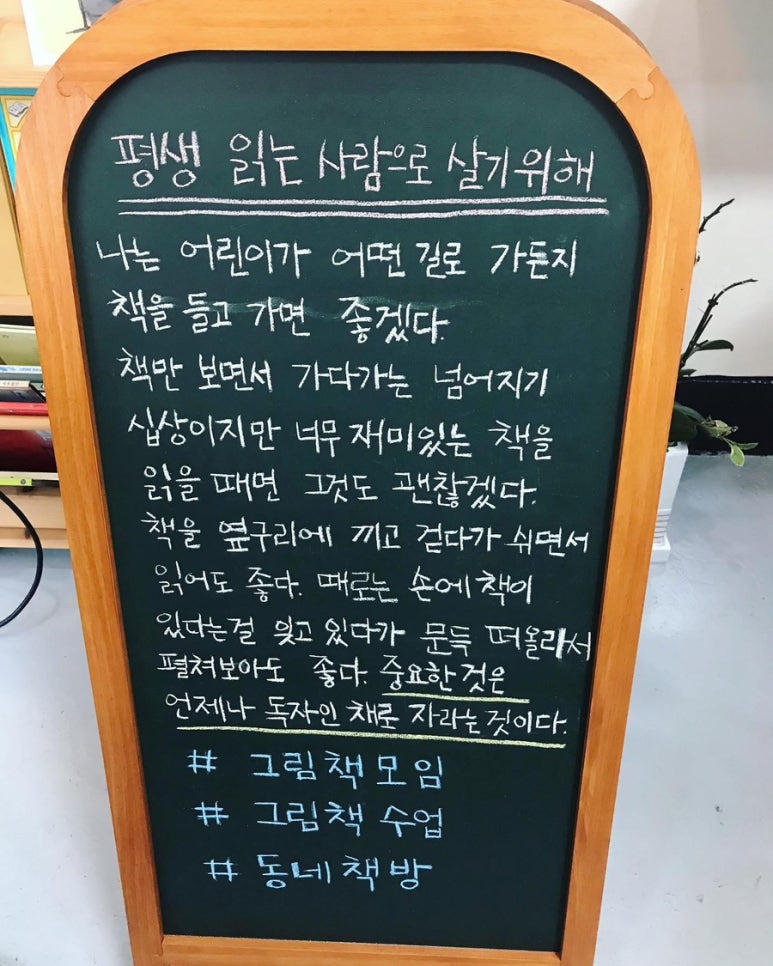 평생 읽는 사람으로 살기위해
나는 어린이가 어떤길로 가든지
책을 들고 가면 좋겠다.
책만 보면서 가다가는 넘어지기
십상이지만 너무 재미있는 책을
읽을 때면 그것도 괜찮겠다.
책을 옆구리에 끼고 걷다가 쉬면서
읽어도 좋다. 때로는 손에 책이
있다는걸 잊고 있다가 문득 떠올라서
펼쳐보아도 좋다. 중요한 것은
언제나 독자인 채로 자라는 것이다.
# 그림책모임
# 그림책 수업
# 동네책방